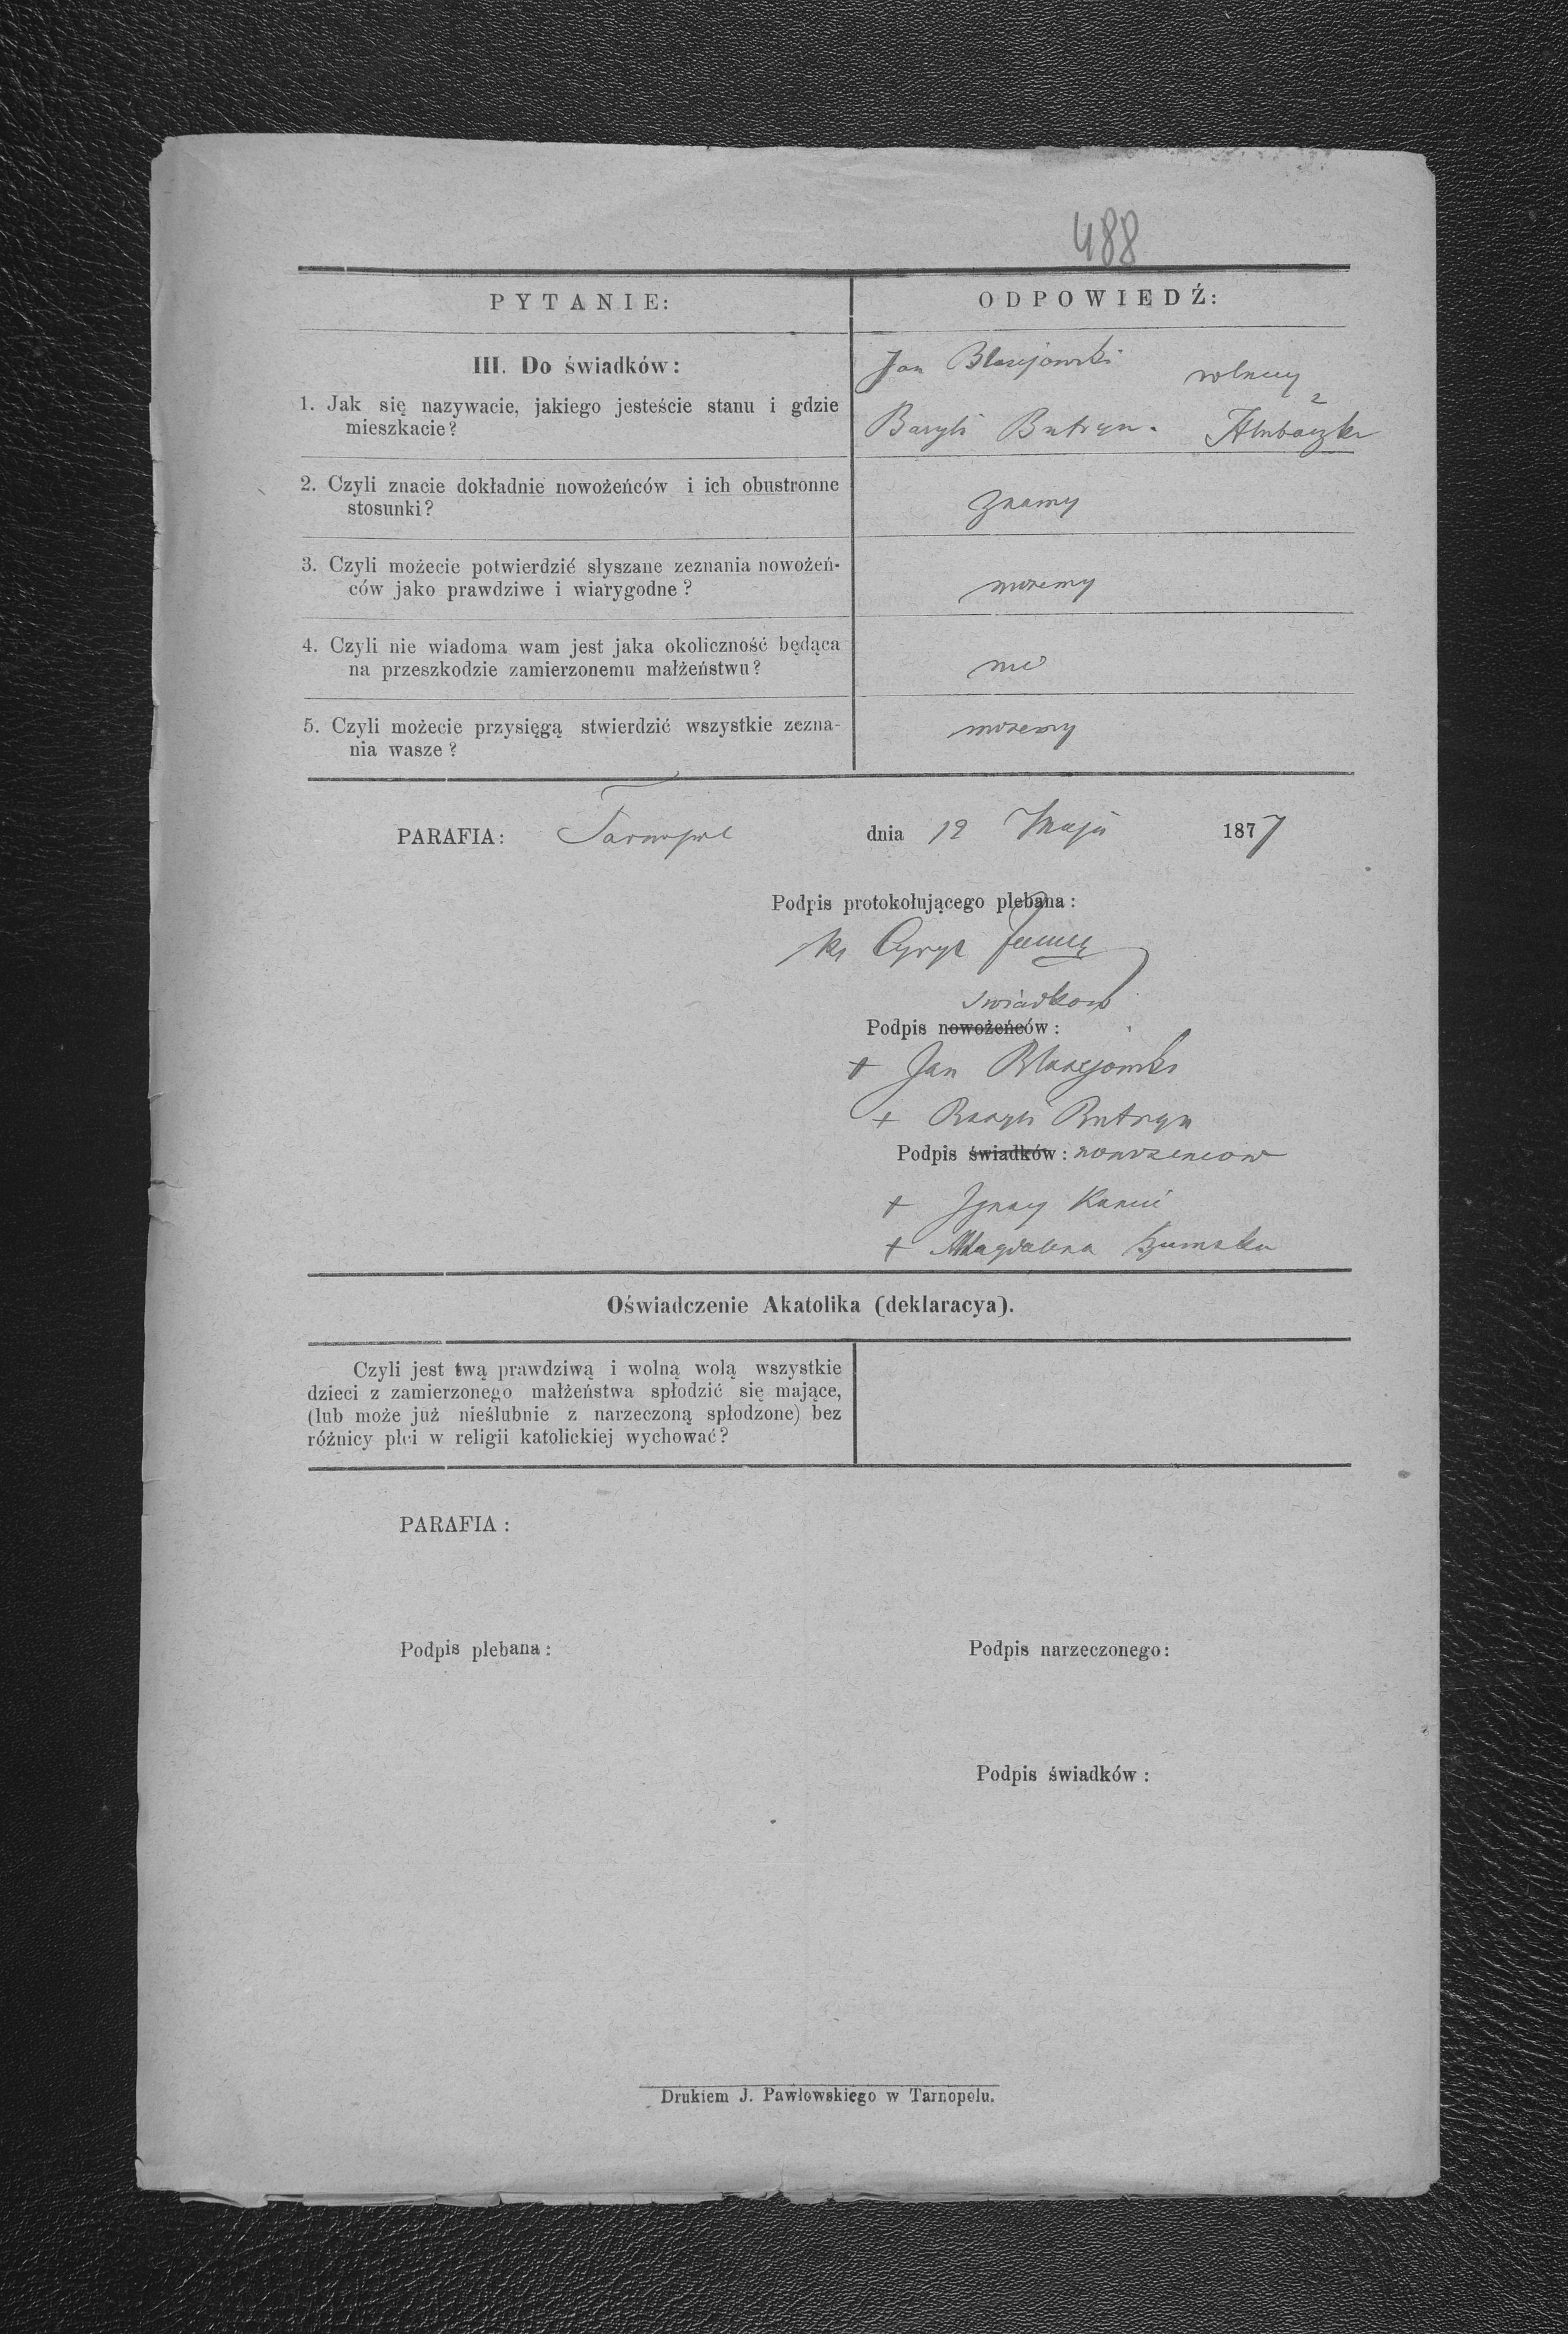 488
PYTANIE: ODPOWIEDŹ:
III. Do świadków:
1. Jak się nazywacie, jakiego jesteście stanu i gdzie
mieszkacie?
Jan Błazejowski rolnicy
Bazyli Butryn. z Hłuboczka
2. Czyli znacie dokładnie nowożeńców i ich obustronne
stosunki?
znamy
3. Czyli możecie potwierdzić słyszane zeznania nowożeń-
ców jako prawdziwe i wiarygodne?
mozemy
4. Czyli nie wiadoma wam jest jaka okoliczność będąca
na przeszkodzie zamierzonemu małżeństwu?
nie
5. Czyli możecie przysięgą stwierdzić wszystkie zezna-
nia wasze?
mozemy
PARAFIA: Tarnopol dnia 12 Maja 1877
Podpis protokołującego plebana:
ks Cyryl
swiadkow
Podpis nowożeńców:
+ Jan Błazejowski
+ Bazyli Butryn
Podpis świadków: nowozencow
+ Ignacy
+ Magdalena
Oświadczenie Akatolika (deklaracya).
Czyli jest twą prawdziwą i wolną wolą wszystkie
dzieci z zamierzonego małżeństwa spłodzić się mające,
(lub może już nieślubnie z narzeczoną spłodzone) bez
różnicy płci w religii katolickiej wychować?
PARAFIA:
Podpis plebana: Podpis narzeczonego:
Podpis świadków:
Drukiem J. Pawłowskiego w Tarnopolu.